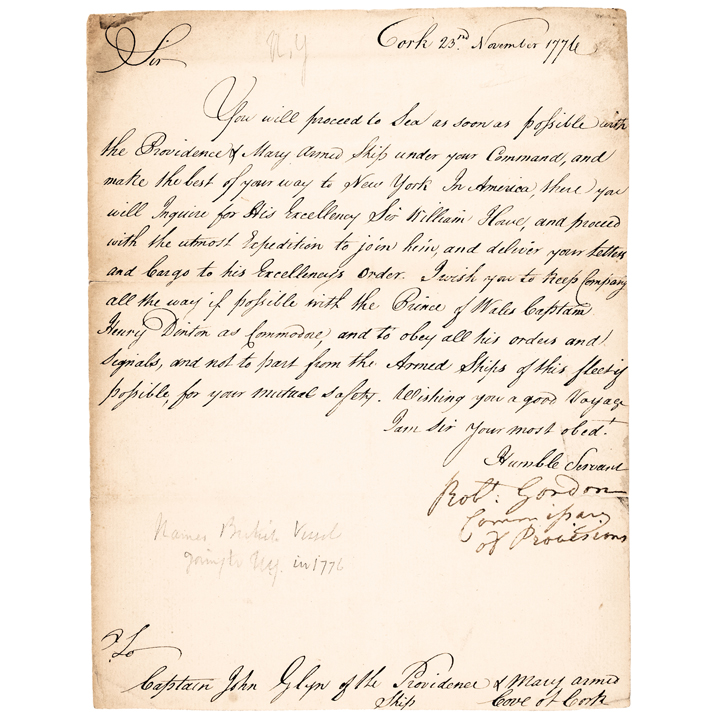 Cork 23.rd November 1776
Sir
N.Y
You will proceed to Sea as soon as possible with
the Providence & Mary Armed Ship under your Command, and
make the best of your way to New York In America, there you
will Inquire for His Excellency Sir William Howe, and proceed
with the utmost Expedition to join him, and deliver your Letters
and Cargo to his Excellencys Order. I wish you to keep Company
all the way if possible with the Prince of Wales Captain
Henry Dinton as Commodore, and to obey all his orders and
Signals, and not to part from the Armed Ships of this fleet if
possible, for your mutual safety. Wishing you a good Voyage
I am Sir Your most obed.t
Humble Servant
Robt. Gordon
Commissary
of Provisions
Names British Vessels
going to N.Y. in 1776
To
Captain John Glyn of the Providence & Mary armed
Ship Cove of Cork